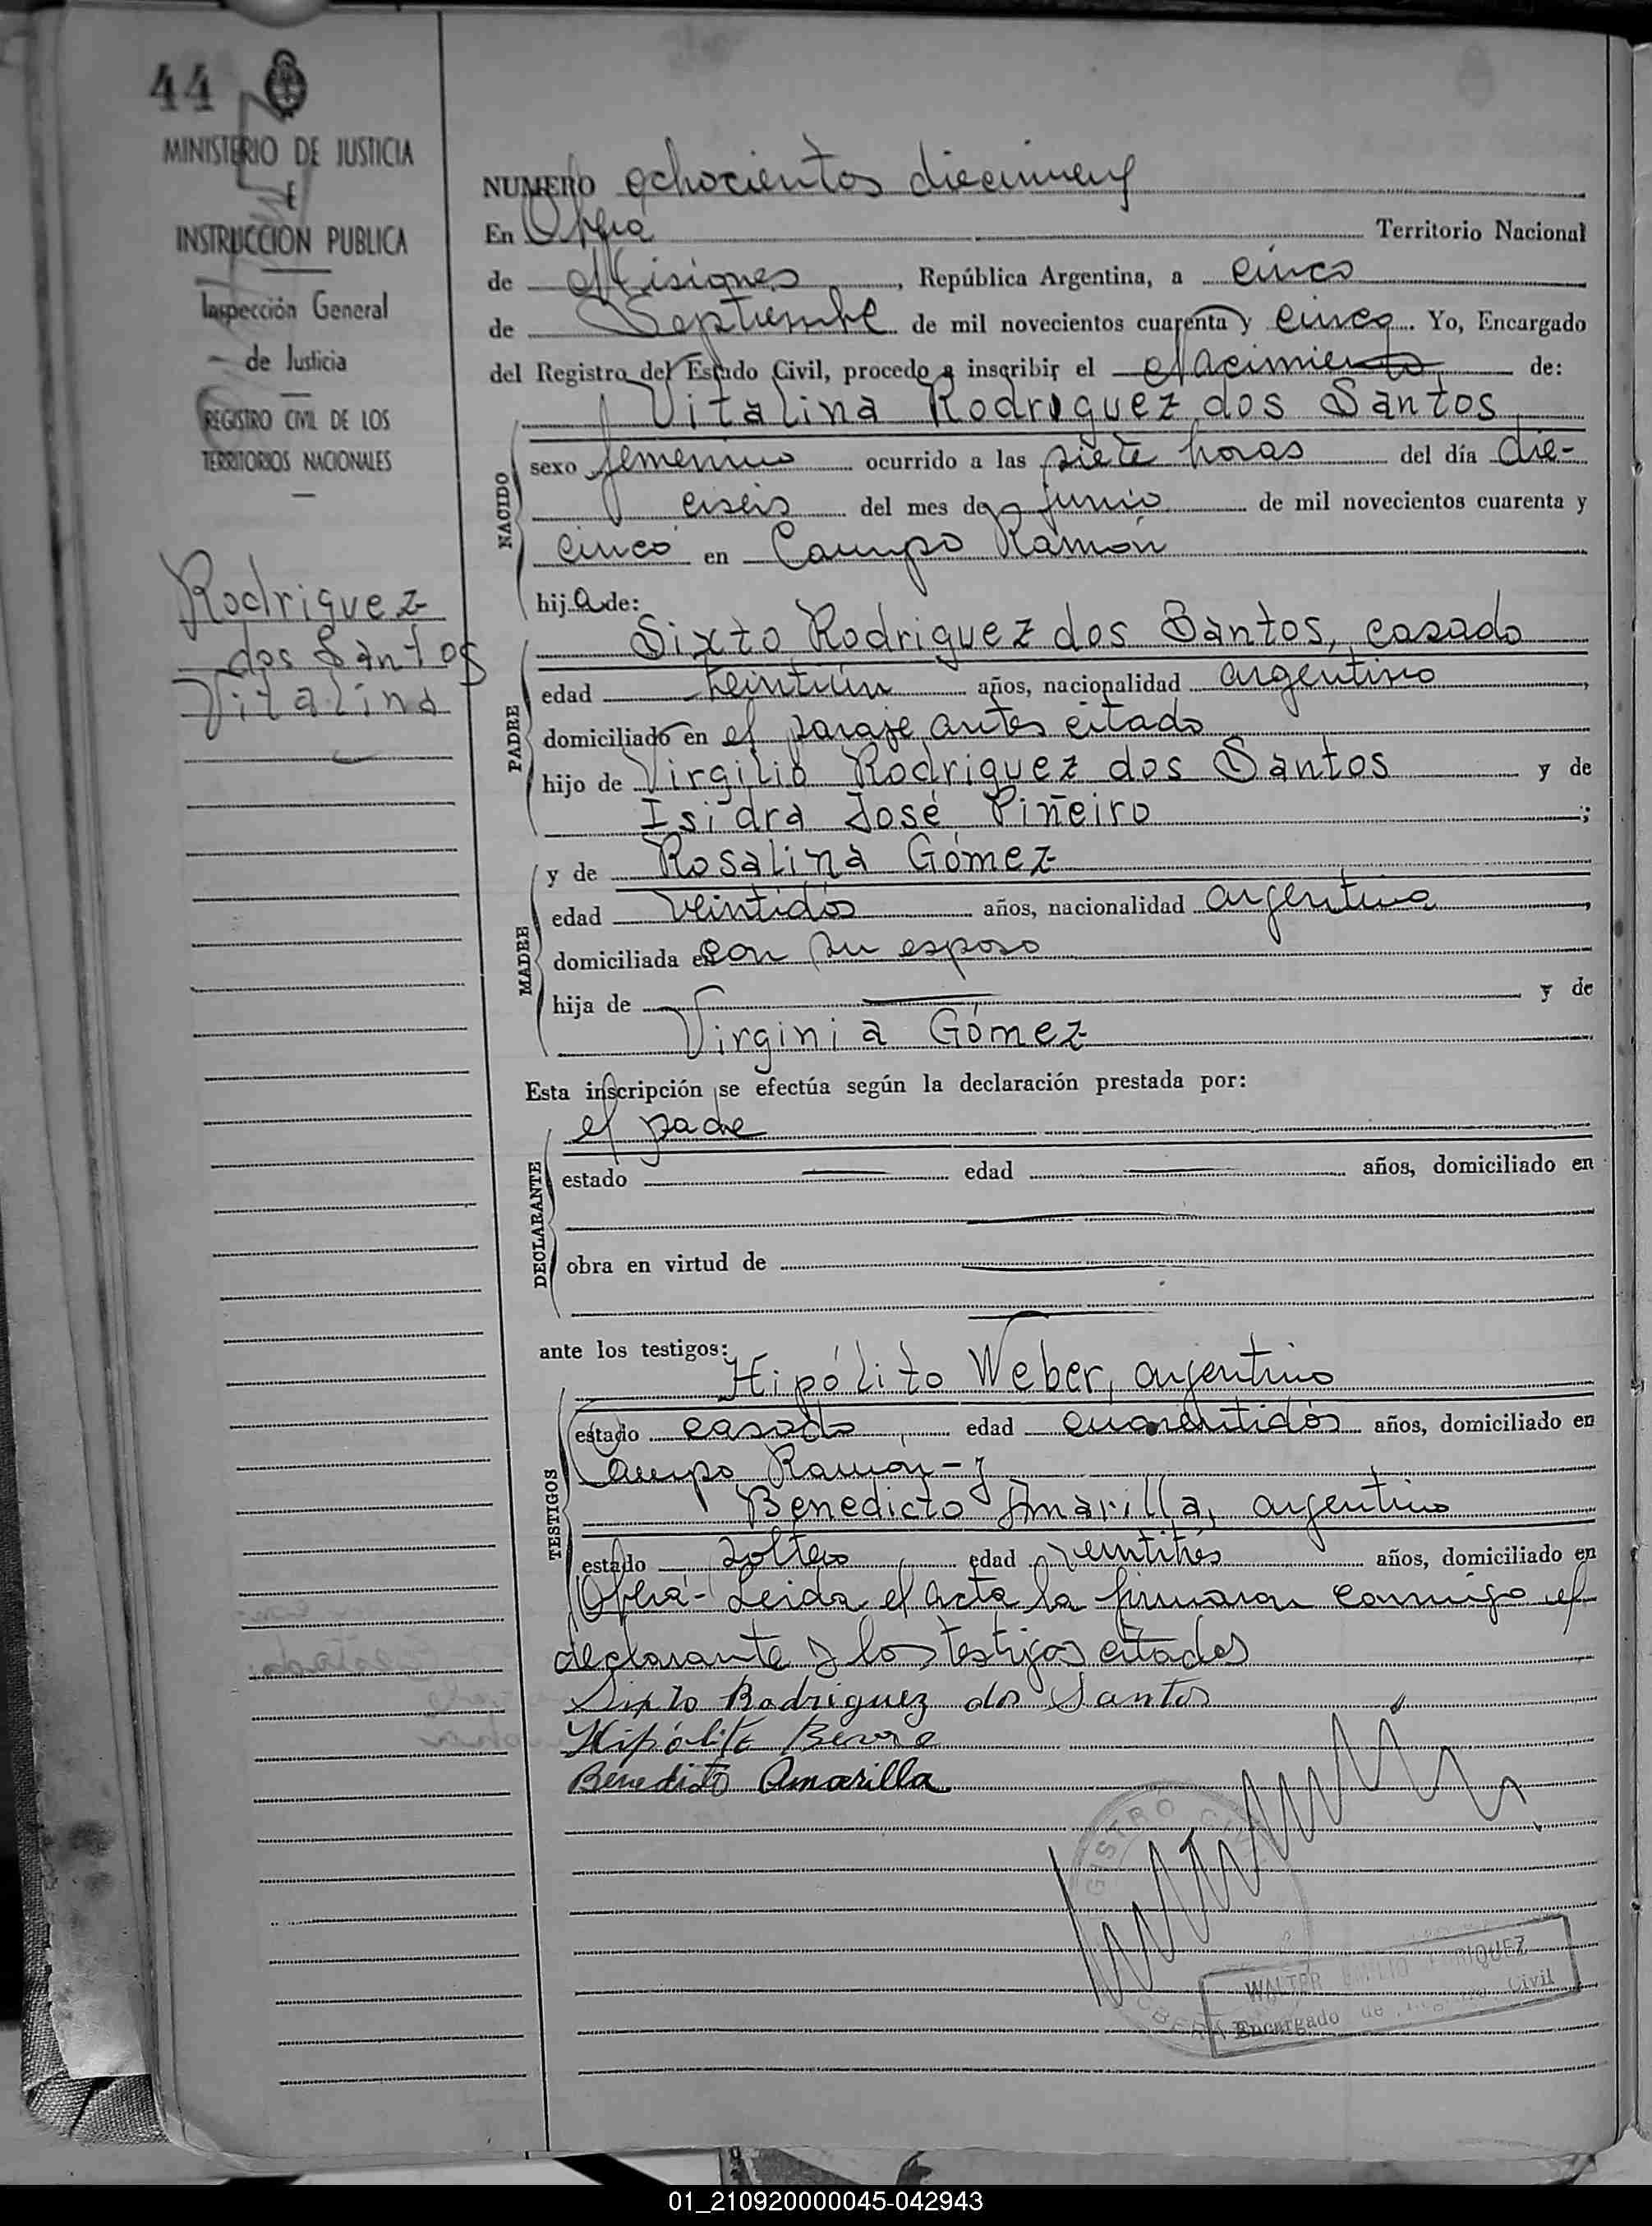 44
MINISTERIO DE JUSTICIA
E
INSTRUCCION PUBLICA
Inspección General
de Justicia
REGISTRO CIVIL DE LOS
TERRITORIOS NACIONALES
Rodriguez
dos Santos
Vitalina
NUMERO ochocientos diecinueve
En Oberá Territorio Nacional
de Misiones, República Argentina, a cinco
de Septiembre de mil novecientos cuarenta y cinco. Yo, Encargado
del Registro del Estado Civil, procedo a inscribir el Nacimiento de:
Vitalina Rodriguez dos Santos
NACIDO
sexo femenino ocurrido a las siete horas del día die-
ciseis del mes de junio de mil novecientos cuarenta y
cinco en Campo Ramón
hija de:
PADRE
Sixto Rodriguez dos Santos, casado
edad veintiún años, nacionalidad argentino,
domiciliado en el paraje antes citado
hijo de Virgilio Rodriguez dos Santos y de
Isidra José Piñeiro;
MADRE
y de Rosalina Gómez
edad veintidós años, nacionalidad argentina,
domiciliada en con su esposo
hija de — y de
Virginia Gómez
Esta inscripción se efectúa según la declaración prestada por:
DECLARANTE
el padre
estado — edad — años, domiciliado en
—
obra en virtud de —
—
ante los testigos:
TESTIGOS
Hipólito Weber, argentino
estado casado edad cuarentidós años, domiciliado en
Campo Ramón - y
Benedicto Amarilla, argentino
estado soltero edad veintitrés años, domiciliado en
Oberá - Leida el acta la firmaron conmigo el
declarante y los testigos citados
Sixto Rodriguez dos Santos
Hipólito
Benedicto Amarilla
REGISTRO CIVIL
OBERA
WALTER EMILIO
Encargado de Registro Civil
01_210920000045-042943